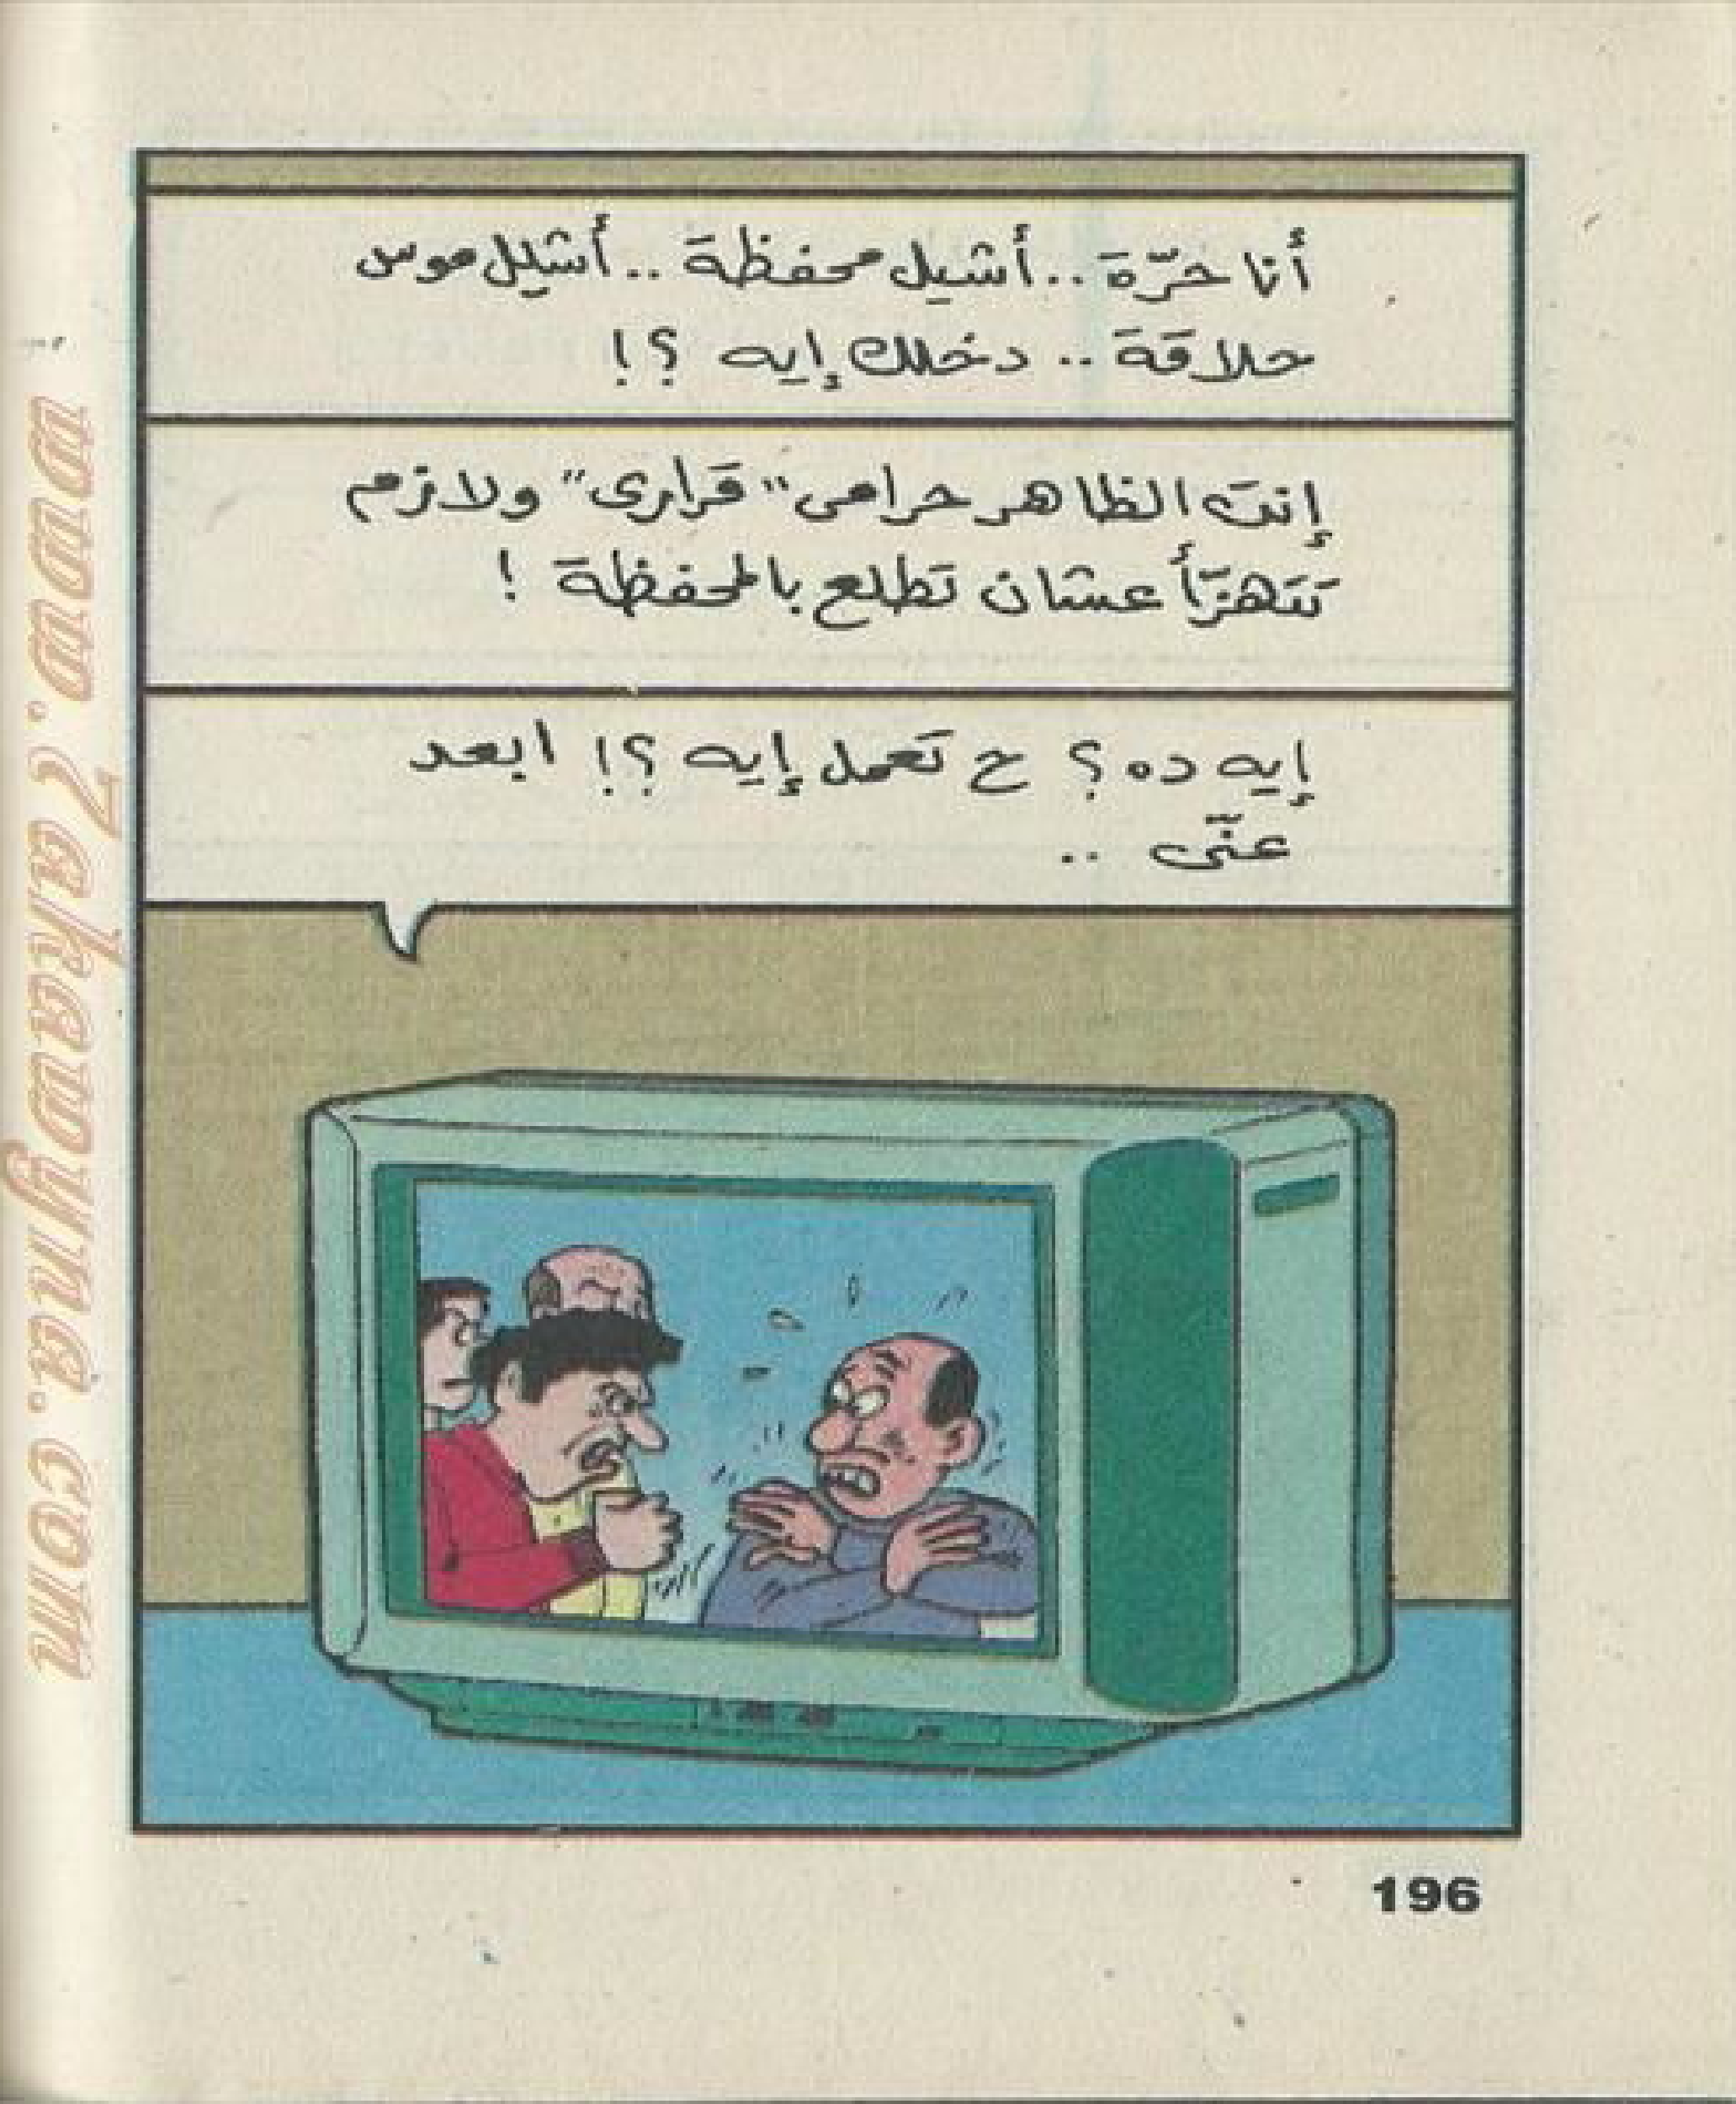 أنا حرّة .. أشيل محفظة .. أشيل موس
حلاقة .. دخلك إيه ؟!
إنت الظاهر حرامى "قرارى" ولازم
تتهزّأ عشان تطلع بالمحفظة !
إيه ده ؟ ح تعمل إيه ؟! ابعد
عنّى ..
196
www.7akawyina.com